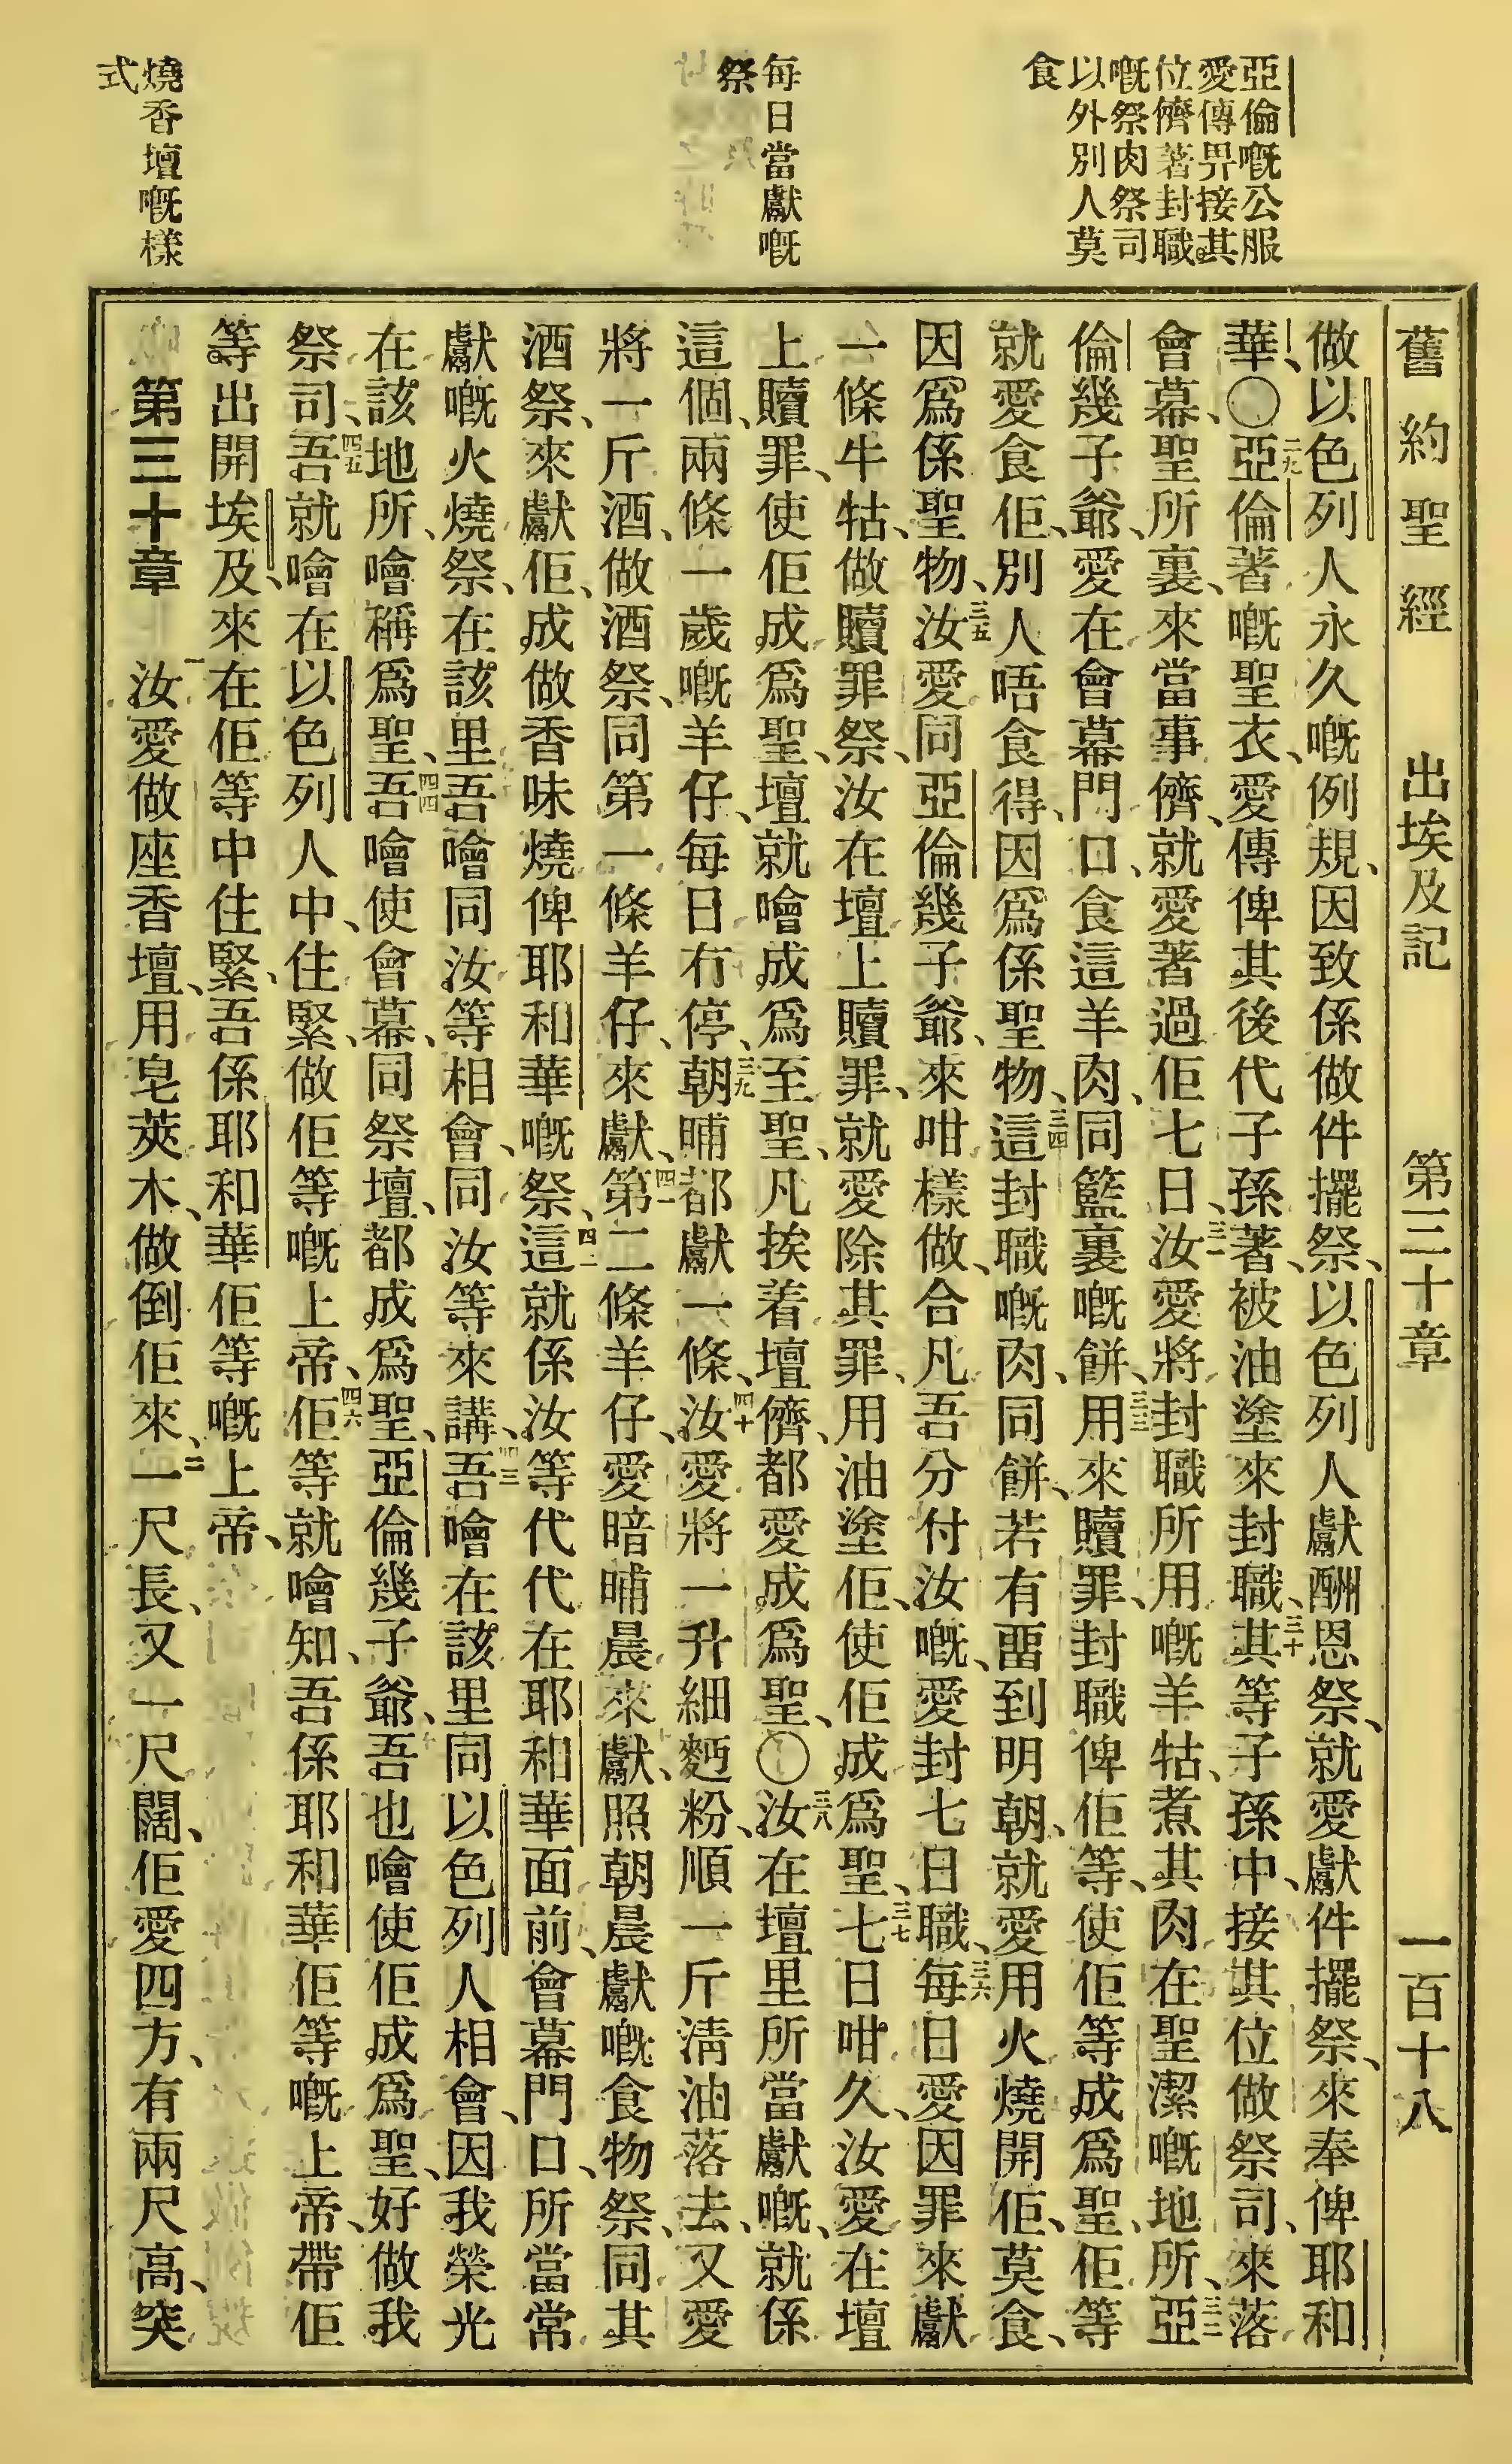 亞倫嘅公服
愛傳畀接其
位儕著封職
嘅祭肉祭司
以外別人莫
食
每日當獻嘅
祭
燒香壇嘅樣
式
舊約聖經 出埃及記 第三十章 一百十八
做以色列人永久嘅例規、因致係做件擺祭、以色列人獻酬恩祭、就愛獻件擺祭、來奉俾耶和
華、〇二九亞倫著嘅聖衣、愛傳俾其後代子孫著、被油塗來封職、三十其等子孫中、接其位做祭司、來落
會幕、聖所裏、來當事儕、就愛著過佢七日、三一汝愛將封職所用嘅羊牯、煮其肉在聖潔嘅地所、三二亞
倫幾子爺、愛在會幕門口、食這羊肉、同籃裏嘅餅、三三用來贖罪、封職俾佢等、使佢等成爲聖、佢等
就愛食佢、別人唔食得、因爲係聖物、三四這封職嘅肉、同餅、若有畱到明朝、就愛用火燒開佢、莫食、
因爲係聖物、三五汝愛同亞倫幾子爺、來咁樣做、合凡吾分付汝嘅、愛封七日職、三六每日愛因罪來獻
一條牛牯、做贖罪祭、汝在壇上贖罪、就愛除其罪、用油塗佢、使佢成爲聖、三七七日咁久、汝愛在壇
上贖罪、使佢成爲聖、壇就噲成爲至聖、凡挨着壇儕、都愛成爲聖、〇三八汝在壇里所當獻嘅、就係
這個、兩條一歲嘅羊仔、每日冇停、三九朝晡都獻一條、四十汝愛將一升細麪粉、順一斤淸油落去、又愛
將一斤酒、做酒祭、同第一條羊仔、來獻、四一第二條羊仔、愛暗晡晨來獻、照朝晨獻嘅食物祭、同其
酒祭、來獻佢、成做香味燒俾耶和華嘅祭、四二這就係汝等代代在耶和華面前、會幕門口、所當常
獻嘅火燒祭、在該里吾噲同汝等相會、同汝等來講、四三吾噲在該里同以色列人相會、因我榮光
在該地所、噲稱爲聖、四四吾噲使會幕、同祭壇、都成爲聖、亞倫幾子爺、吾也噲使佢成爲聖、好做我
祭司、四五吾就噲在以色列人中、住緊、做佢等嘅上帝、四六佢等就噲知、吾係耶和華佢等嘅上帝、帶佢
等出開埃及、來在佢等中住緊、吾係耶和華佢等嘅上帝、
第三十章 一汝愛做座香壇、用皂莢木、做倒佢來、二一尺長、又一尺闊、佢愛四方、有兩尺高、突